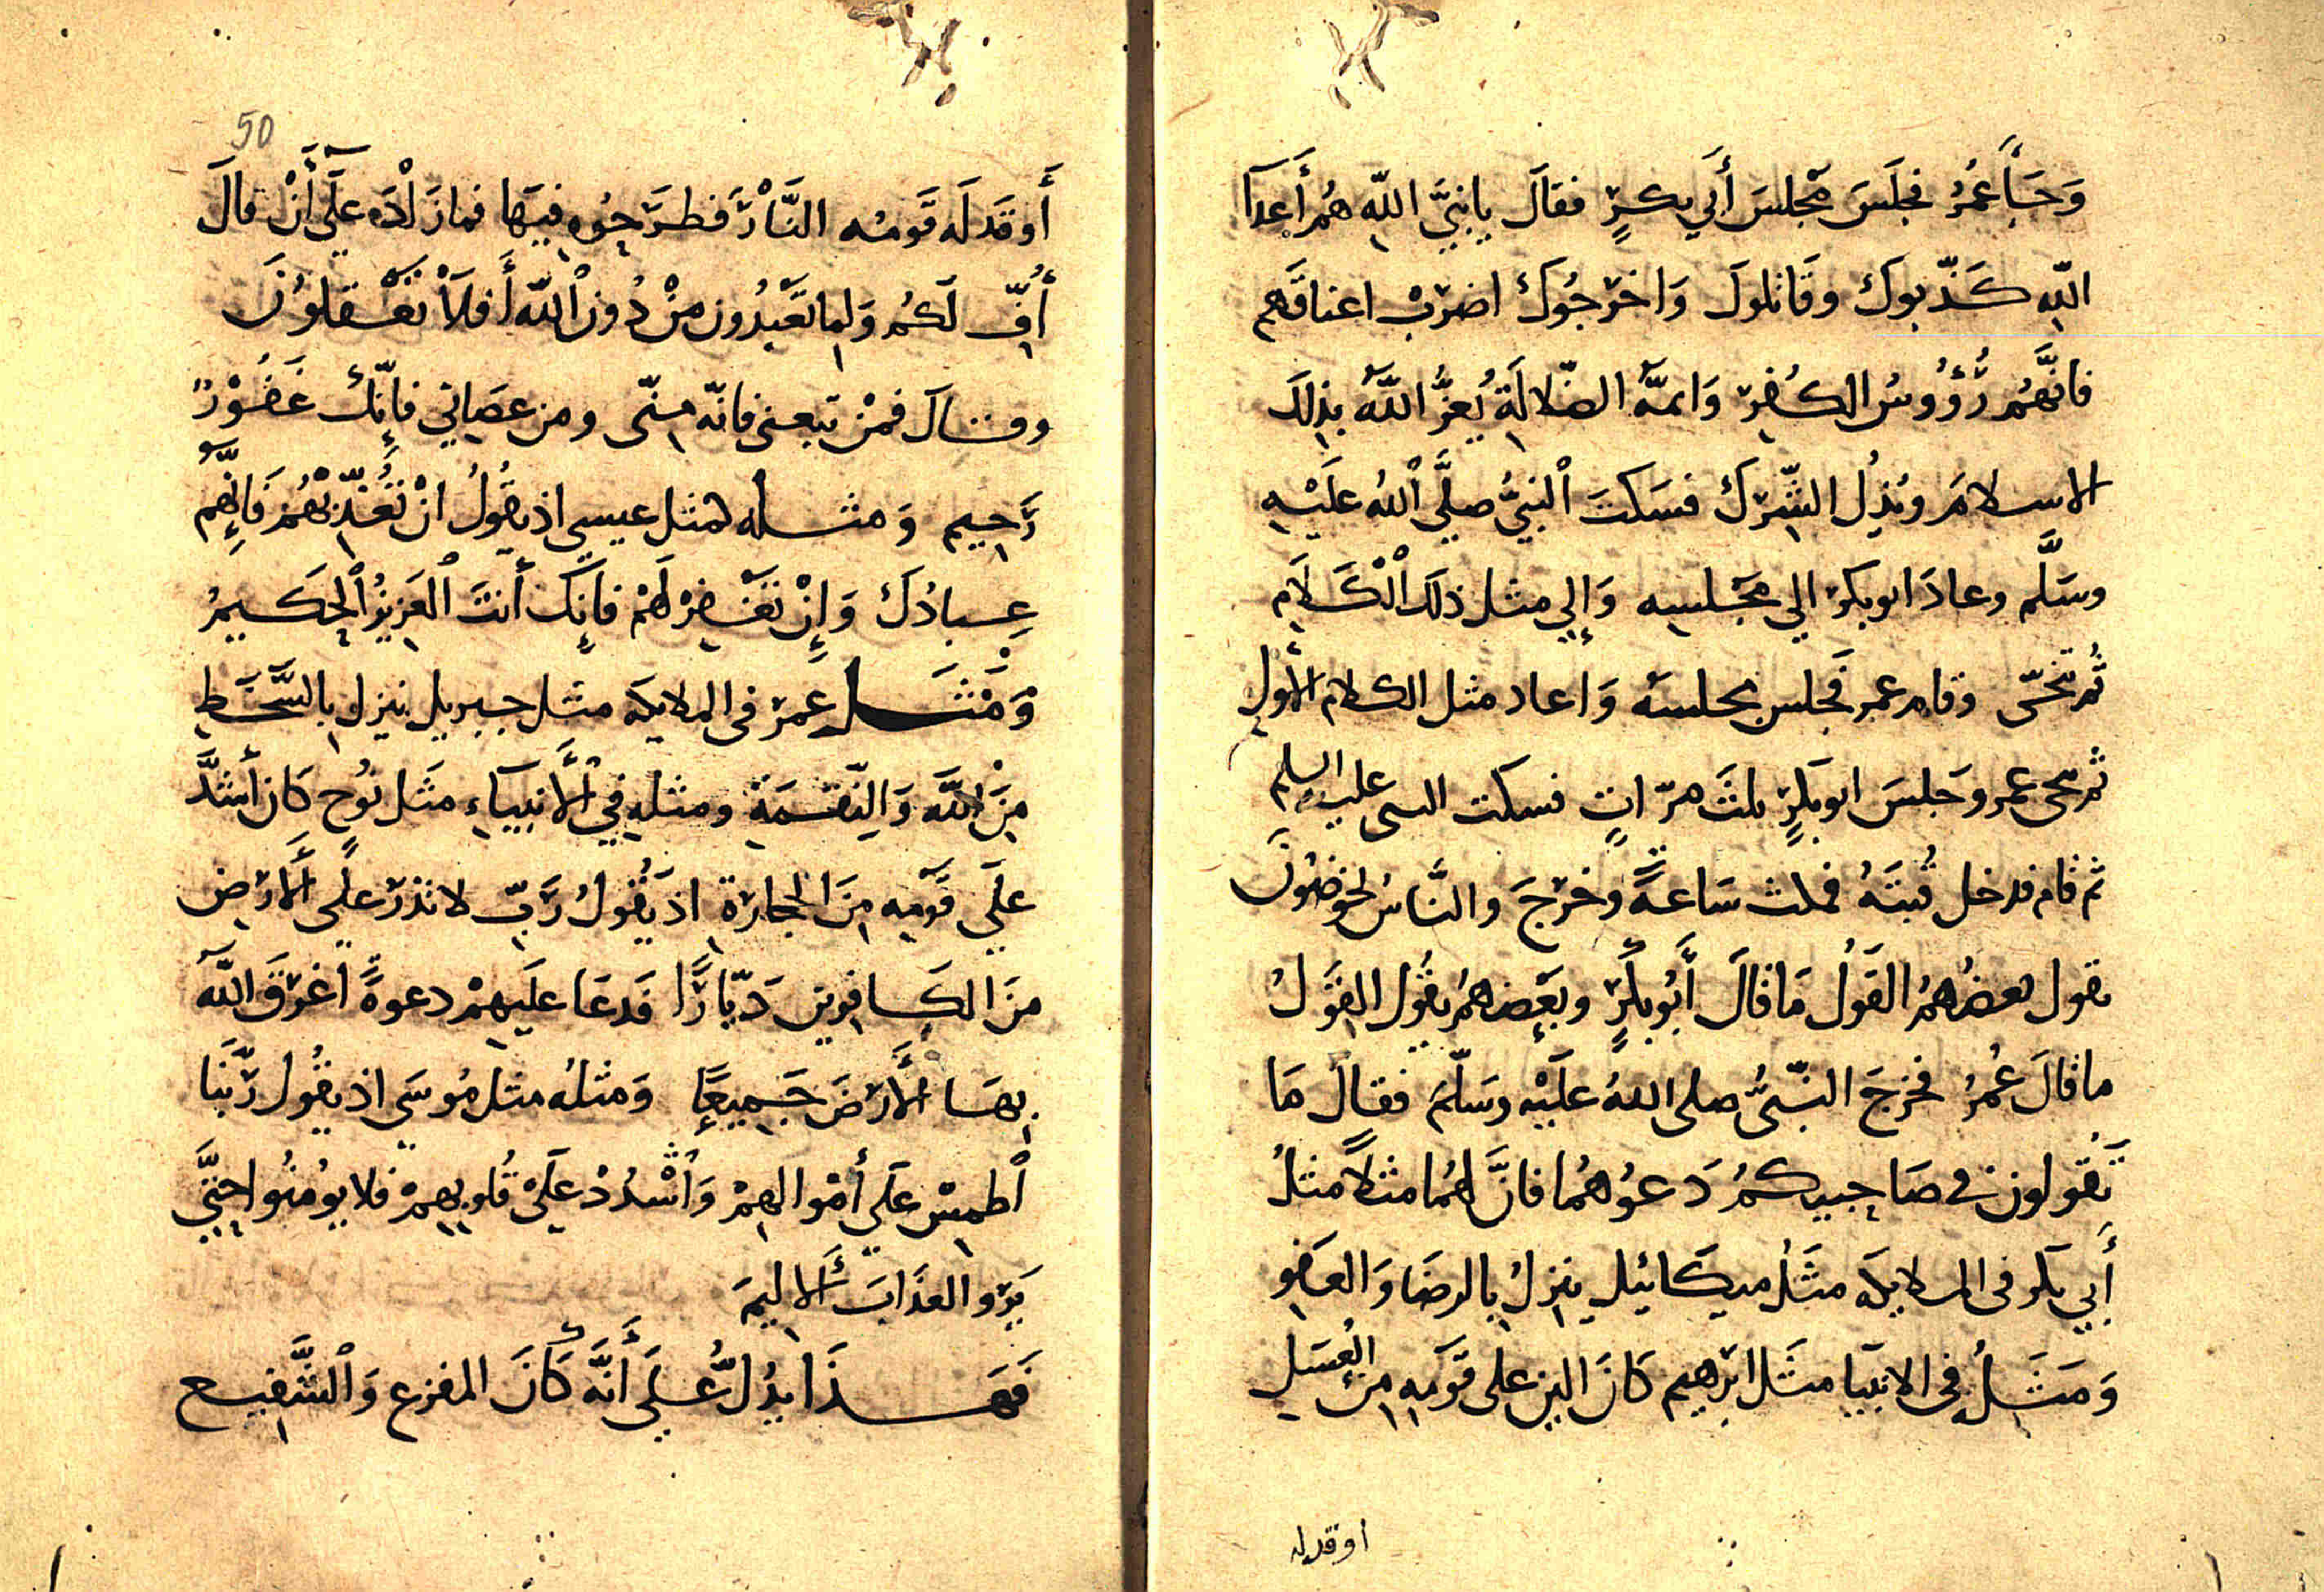 وَجَاءَ عُمَرُ فجلَسَ مَجْلسَ أَبي بكرٍ فقالَ يا نبيَّ اللهِ هُم أَعدآ
اللهِ كَذّبوكَ وقَاتلوكَ وَاخرَجُوكَ اضرِبْ اعناقَهم
فانَّهُم رُؤُوسُ الكُفرِ وَايمَّةُ الضّلالَةِ يُعِزُّ اللهُ بذلِكَ
الاسلامَ ويُذِلُ الشِّركَ فسَكتَ ٱلنبيُّ صلَّى ٱللهُ علَيْهِ
وسَلَّم وعادَ ابوبكر الي مَجْلسِه وَإِلي مثل ذلكَ الْكَلَامِ
ثُم تنحّى وقام عمر فَجلس مجلسَه وَاعاد مثل الكلام الأَولِ
ثم تنحى عمر وجَلسَ ابو بكرٍ ثلثَ مرّاتٍ فسكت النبى عليه السلم
ثم قام فدخل قُبتَهُ فمكث سَاعةً وخرجَ والنَّاسُ يخوضُونَ
يقول بعضُهمُ القَولُ مَا قالَ أَبُو بكرٍ وبَعضهمُ يقُول القَولُ
ما قالَ عُمرُ فخرجَ النّبيُّ صلى اللهُ علَيْهِ وسَلّمَ فقالَ مَا
تَقُولون في صَاحِبيكمُ دَعوُهُما فانَّ لهُما مثلاً مثلُ
أَبي بكر فى الملايكه مثَلُ ميكَائيل ينزلُ بالرضَا وَالعَفو
وَمَثَلُه في الانبيَا مثَل ابرٰهيم كانَ الين على قَومِه مِنَ العَسَلِ
اوقد له
50
أَوقَدَ لَه قَومُه النَّارَ فطرَحُوه فيهَا فما زَادَه علَى أَنْ قالَ
أُفٍّ لَكُم وَلِما تَعْبُدُون مِنْ دُونِ ٱللهِ أَفلَا تعْقلُونَ
وقَالَ فمَنْ تبعنى فانّه مِنّى ومن عصَاني فإنّكَ غَفُوْرٌ
رَحيم وَمثله كمثل عيسي اذ يقُولُ انْ تُعَذِّبْهُم فَإِنَّهم
عِبادُكَ وَإِنْ تَغْفِرْ لَهُمْ فإنِّكَ أنتَ ٱلعَزيزُ ٱلحَكيمُ
وَمَثَل عُمرَ فى الملايكه مثل جبريل ينزل بالسَّخَطِ
مِنَ اللهِ وَالِنّقمَةِ ومثله في ٱلأَنبيَآءِ مثَل نوُحٍ كَان أَشدَّ
علَي قَومِه مِنَ الحجارَةِ اذ يَقُولُ رَبِّ لا تذرْ علَي الأَرْضِ
منَ الكَافِرين دَيّارًا فَدعَا علَيهِمْ دعوةً اغرَقَ اللهُ
بِهَا الأَرْضَ جَميعًا وَمثلهُ مثل مُوسَي اذ يقُول رَبَّنَا
ٱطمِسْ علَي أَموالهِمْ وَٱشْدُدْ علَيْ قُلوبِهِمْ فلا يوُمنُوا حتّيَ
يَرَوا العَذَابَ الأَليمَ
فَهَذَا يدُلُّ عَلَي أَنَّه كَانَ المفزع وَٱلشَّفيع